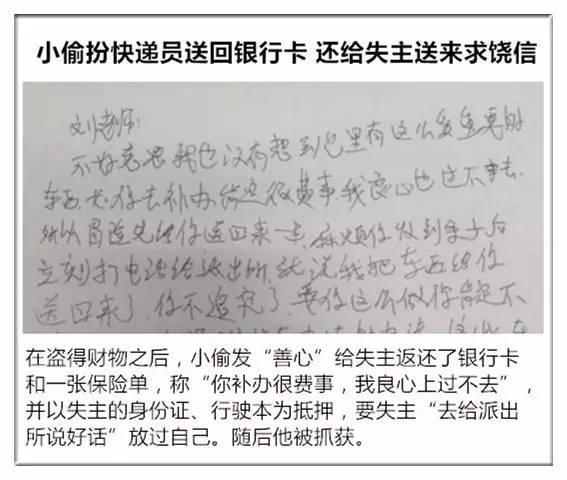 小偷扮快递员送回银行卡 还给失主送来求饶信
刘老师:
不好意思我也没有想到包里有这么多重要的
东西,你去补办肯定很费事,我良心也过不去,
所以冒险先给你送回来一些,麻烦你收到东西后
立刻打电话给派出所,就说我把东西给你
送回来了,你不追究了,要你这么做你肯定不
在盗得财物之后，小偷发“善心”给失主返还了银行卡
和一张保险单，称“你补办很费事，我良心上过不去”，
并以失主的身份证、行驶本为抵押，要失主“去给派出
所说好话”放过自己。随后他被抓获。